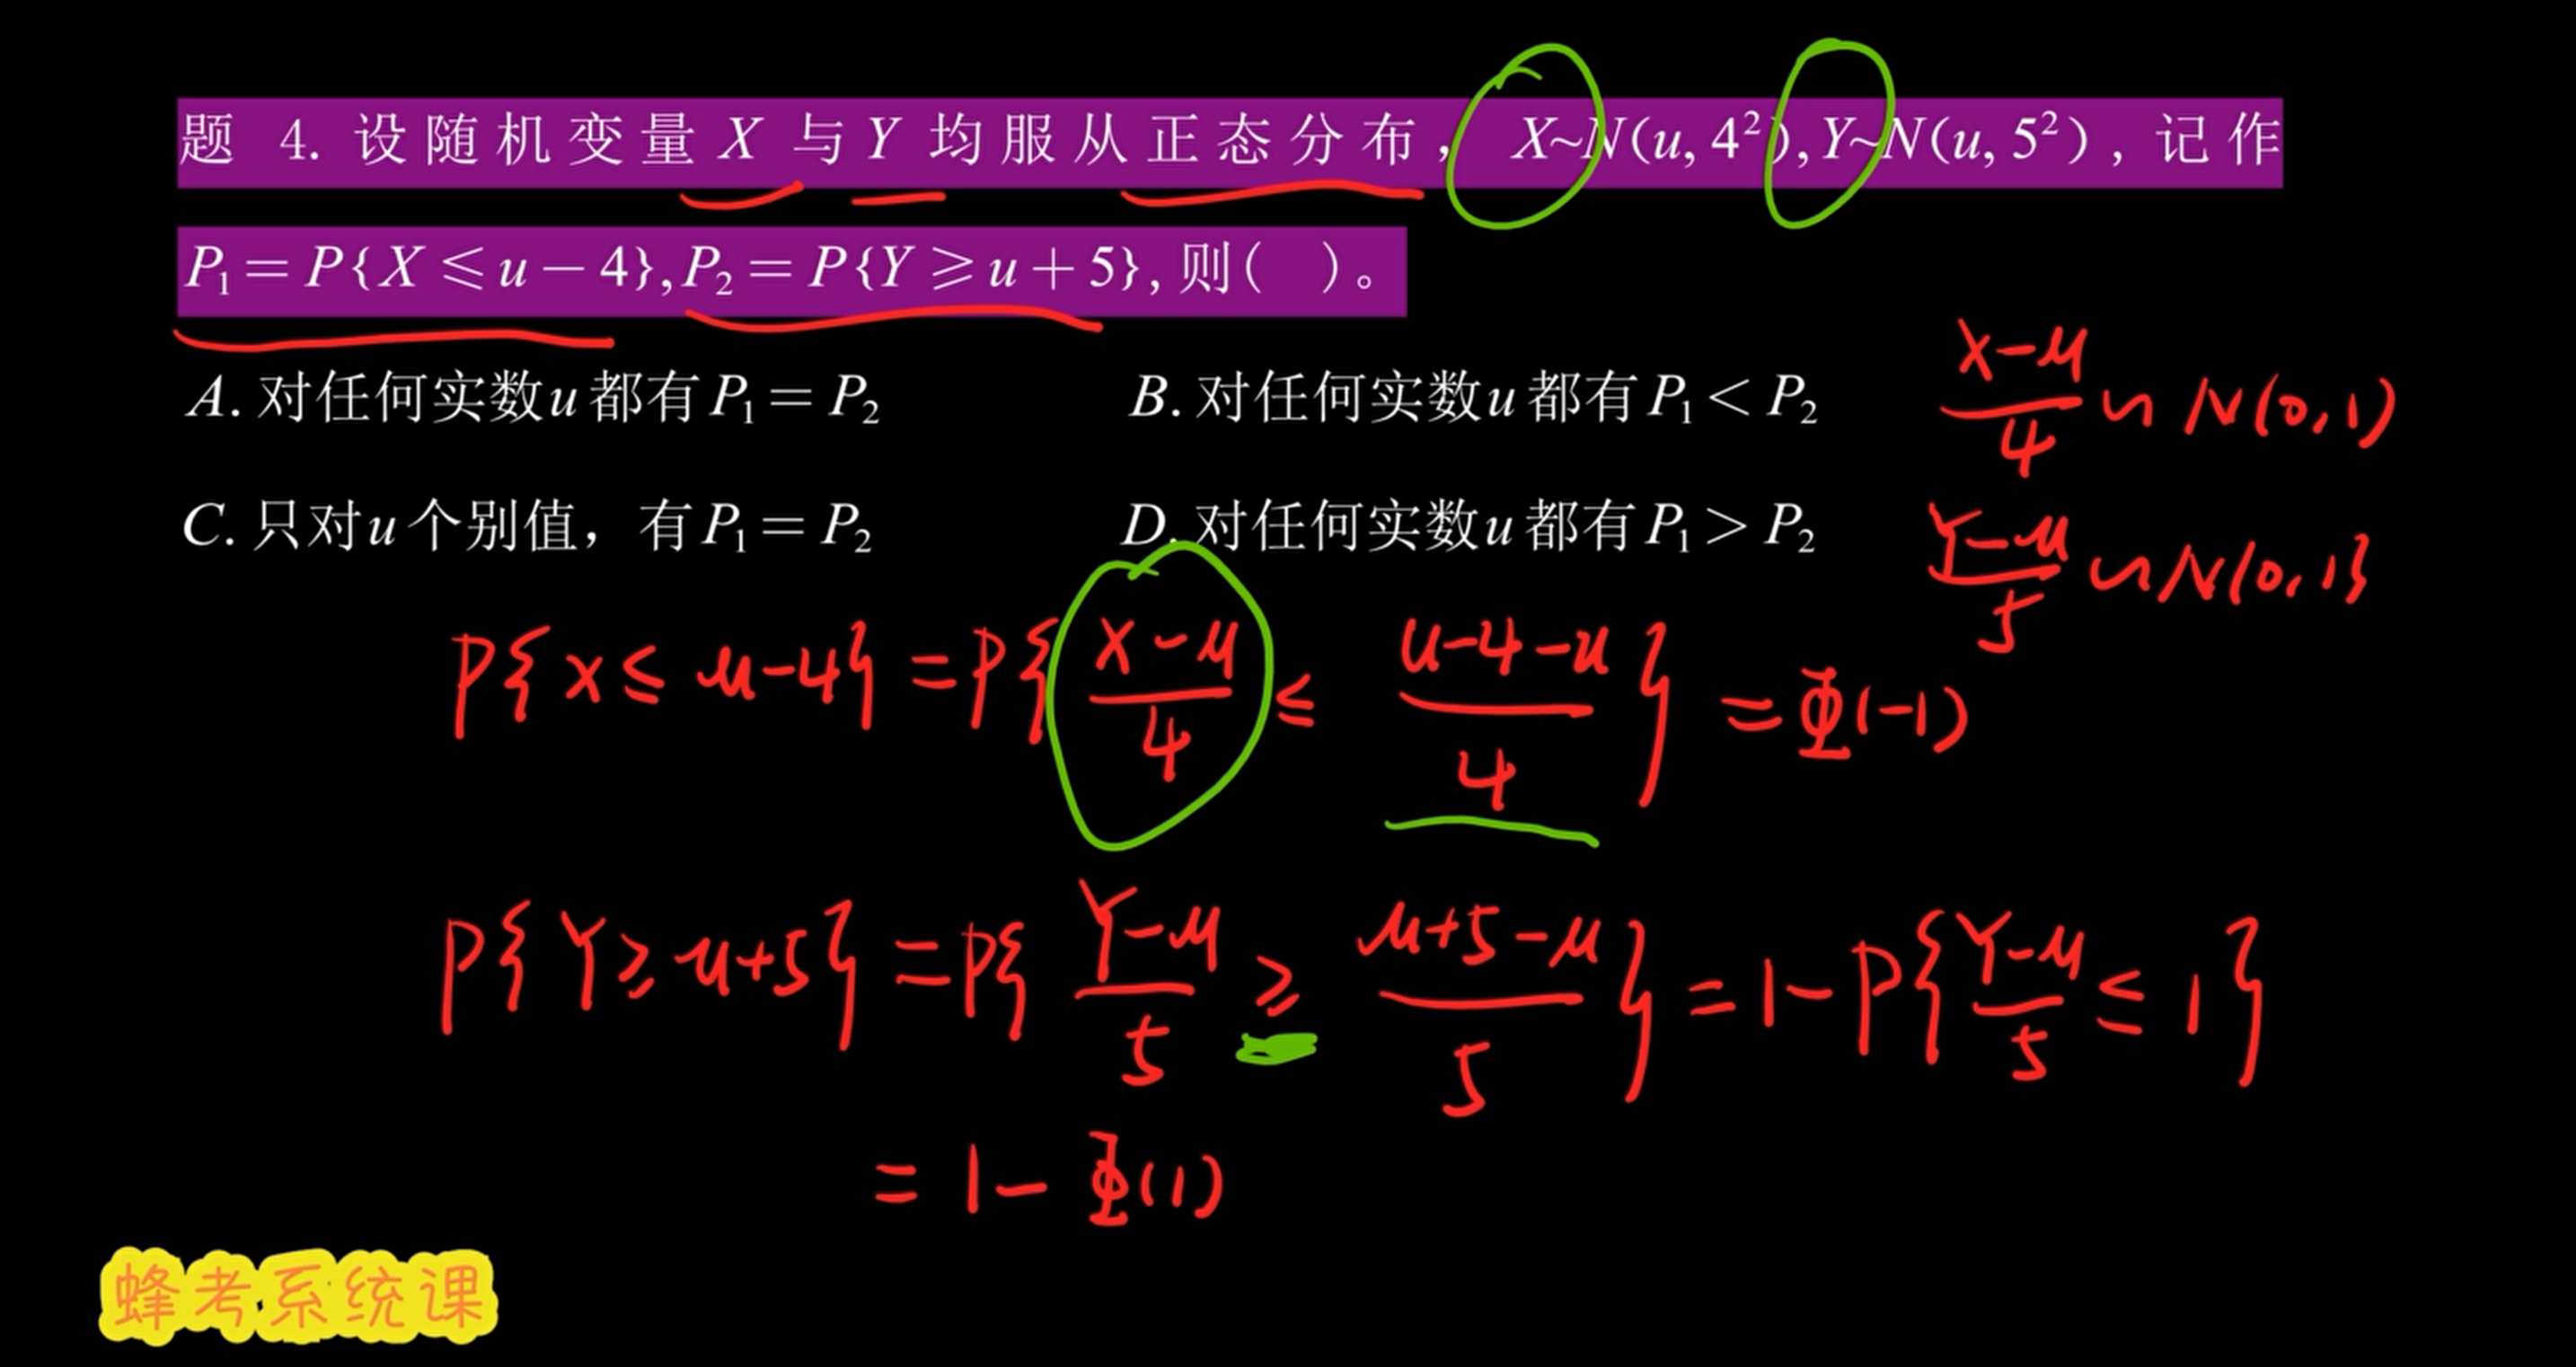 题 4. 设随机变量 X 与 Y 均服从正态分布， X~N(u, 4²), Y~N(u, 5²) ，记作
P₁ = P{X ⩽ u − 4}, P₂ = P{Y ⩾ u + 5}, 则(  )。
A. 对任何实数u都有P₁ = P₂ B. 对任何实数u都有P₁ < P₂
C. 只对u个别值，有P₁ = P₂ D. 对任何实数u都有P₁ > P₂
(X−μ)/4 ~ N(0,1)
(Y−μ)/5 ~ N(0,1}
P{X ≤ μ−4} = P{(X−μ)/4 ≤ (μ−4−μ)/4} = Φ(−1)
P{Y ≥ μ+5} = P{(Y−μ)/5 ≥ (μ+5−μ)/5} = 1−P{(Y−μ)/5 ≤ 1}
= 1− Φ(1)
蜂考系统课